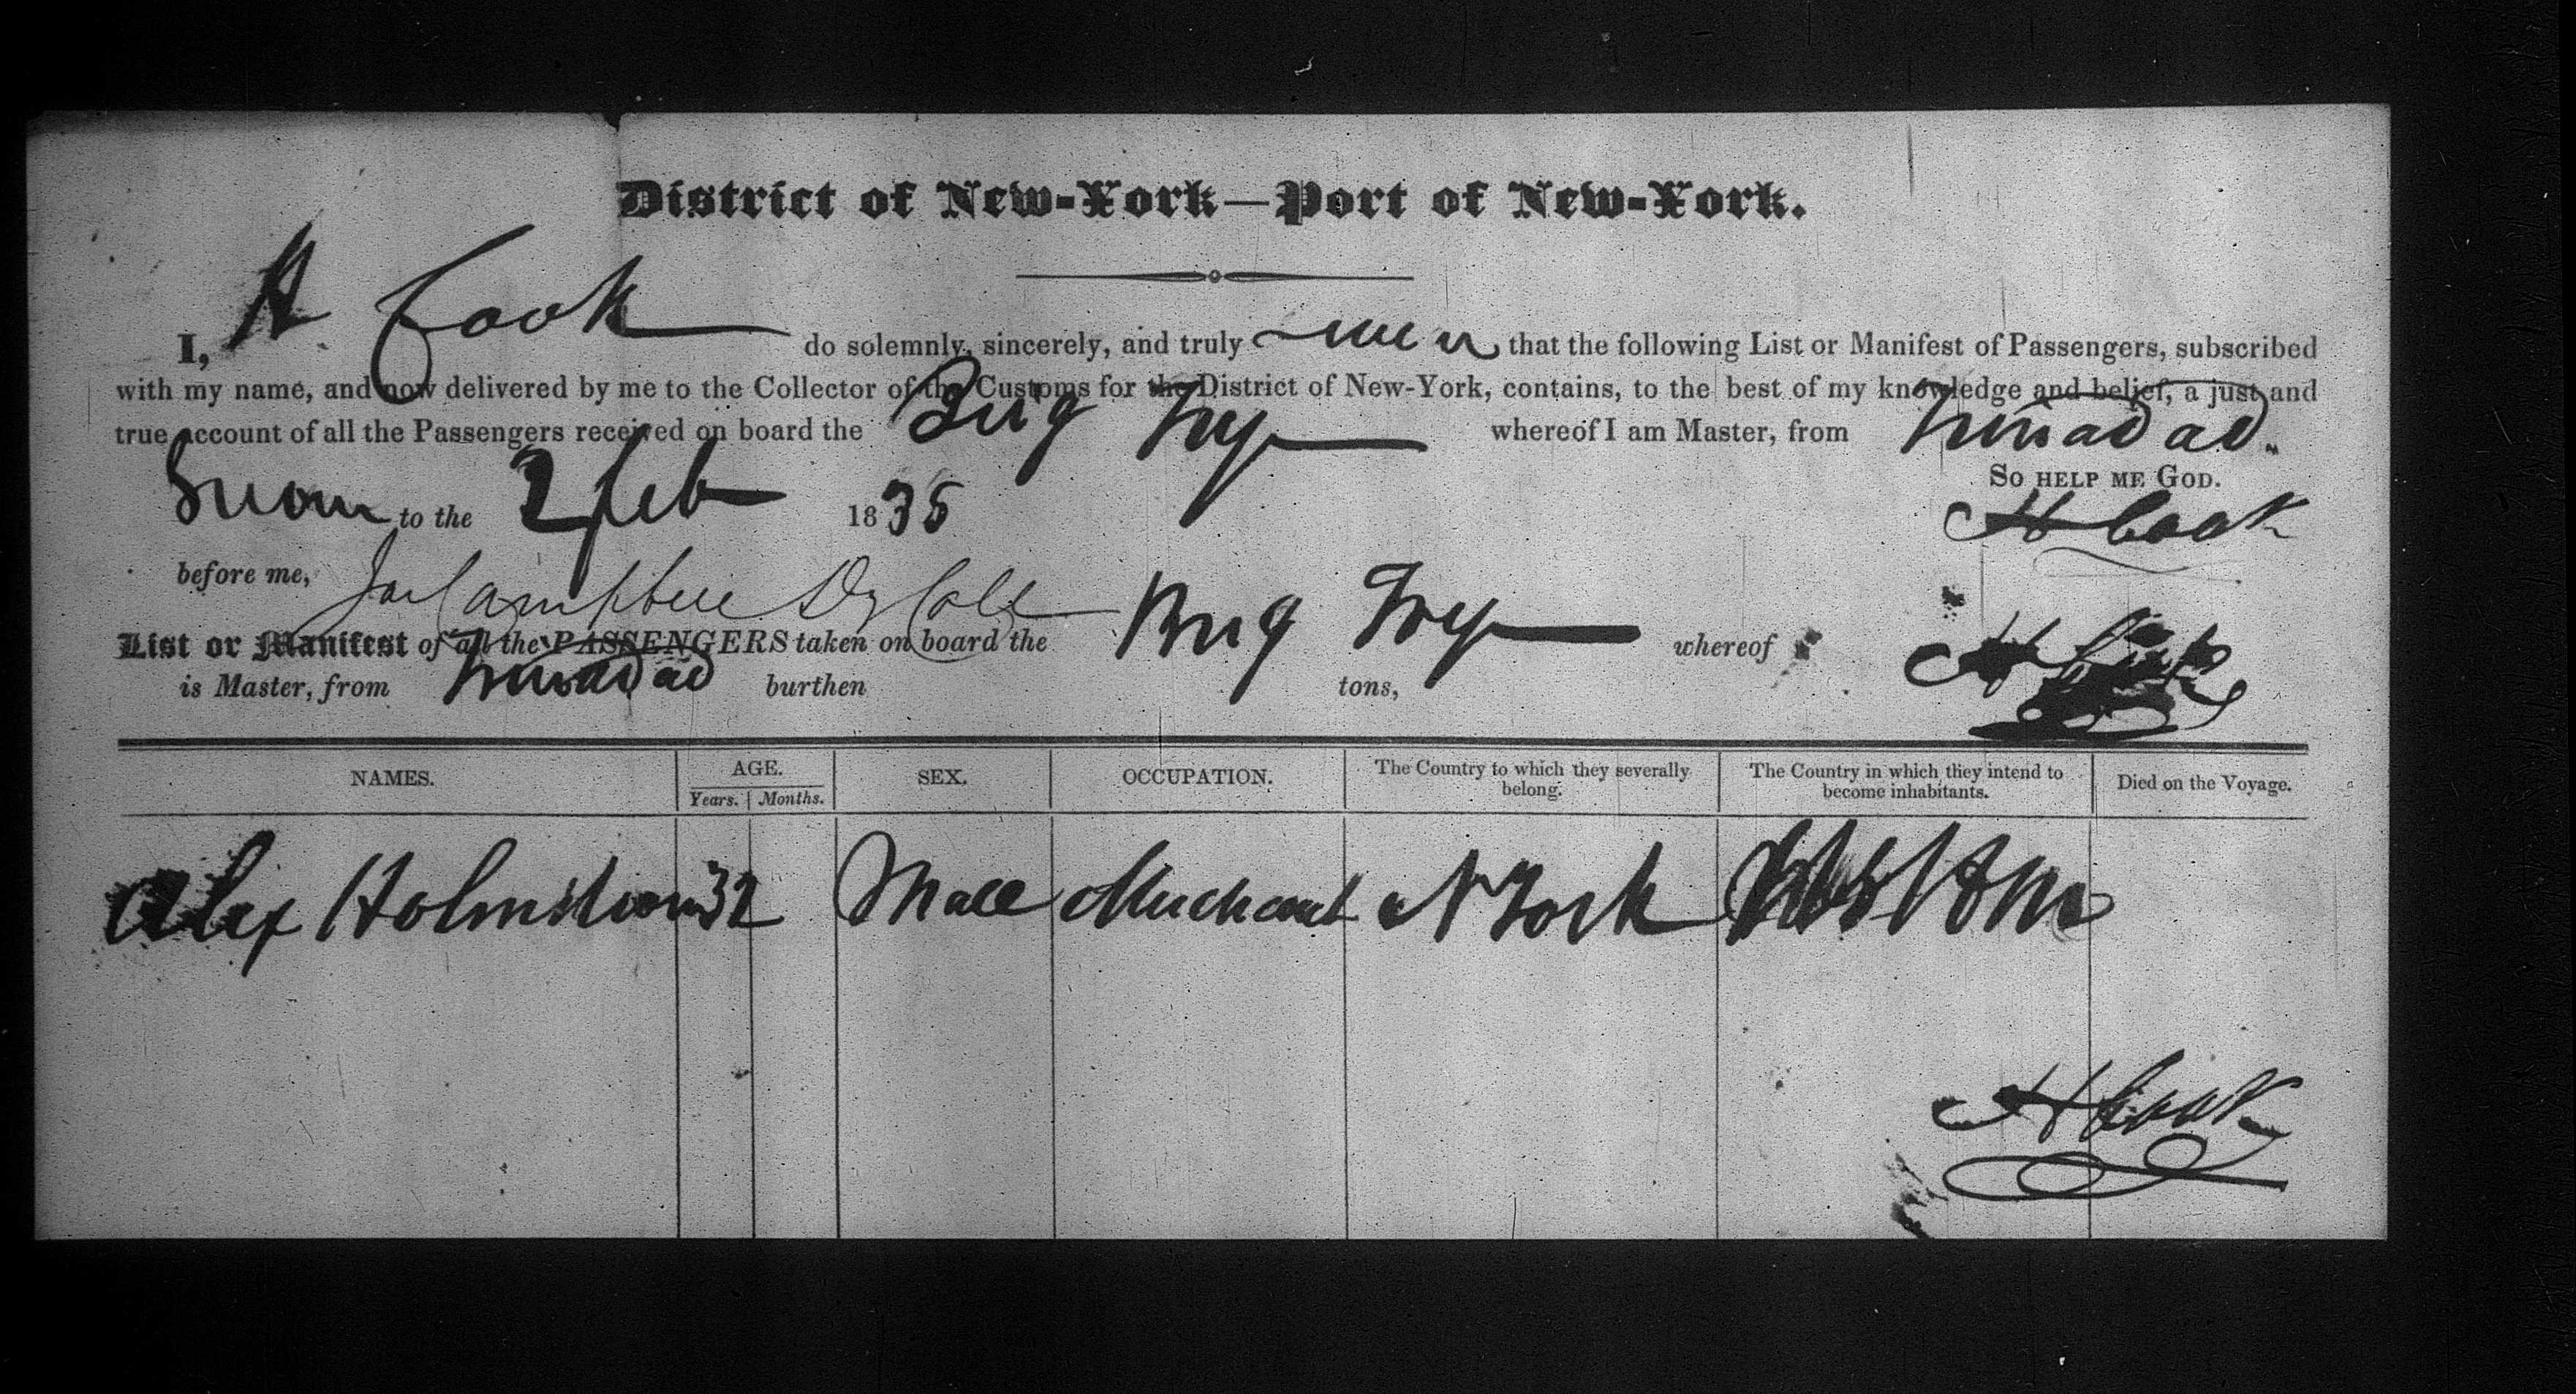 District of New-York—Port of New-York.
I, H Cook do solemnly, sincerely, and truly swear that the following List or Manifest of Passengers, subscribed
with my name, and now delivered by me to the Collector of the Customs for the District of New-York, contains, to the best of my knowledge and belief, a just and
true account of all the Passengers received on board the Brig Troy whereof I am Master, from Trinadad.
So help me God.
Sworn to the 2 feb 1835
H Cook
before me, Jas Campbell Dy Coll
List or Manifest of all the PASSENGERS taken on board the Brig Troy whereof H Cook
is Master, from Trinadad burthen tons,
NAMES. AGE. SEX. OCCUPATION. The Country to which they severally belong. The Country in which they intend to become inhabitants. Died on the Voyage.
Years. Months.
Alex 32 Male Merchant N York
H Cook